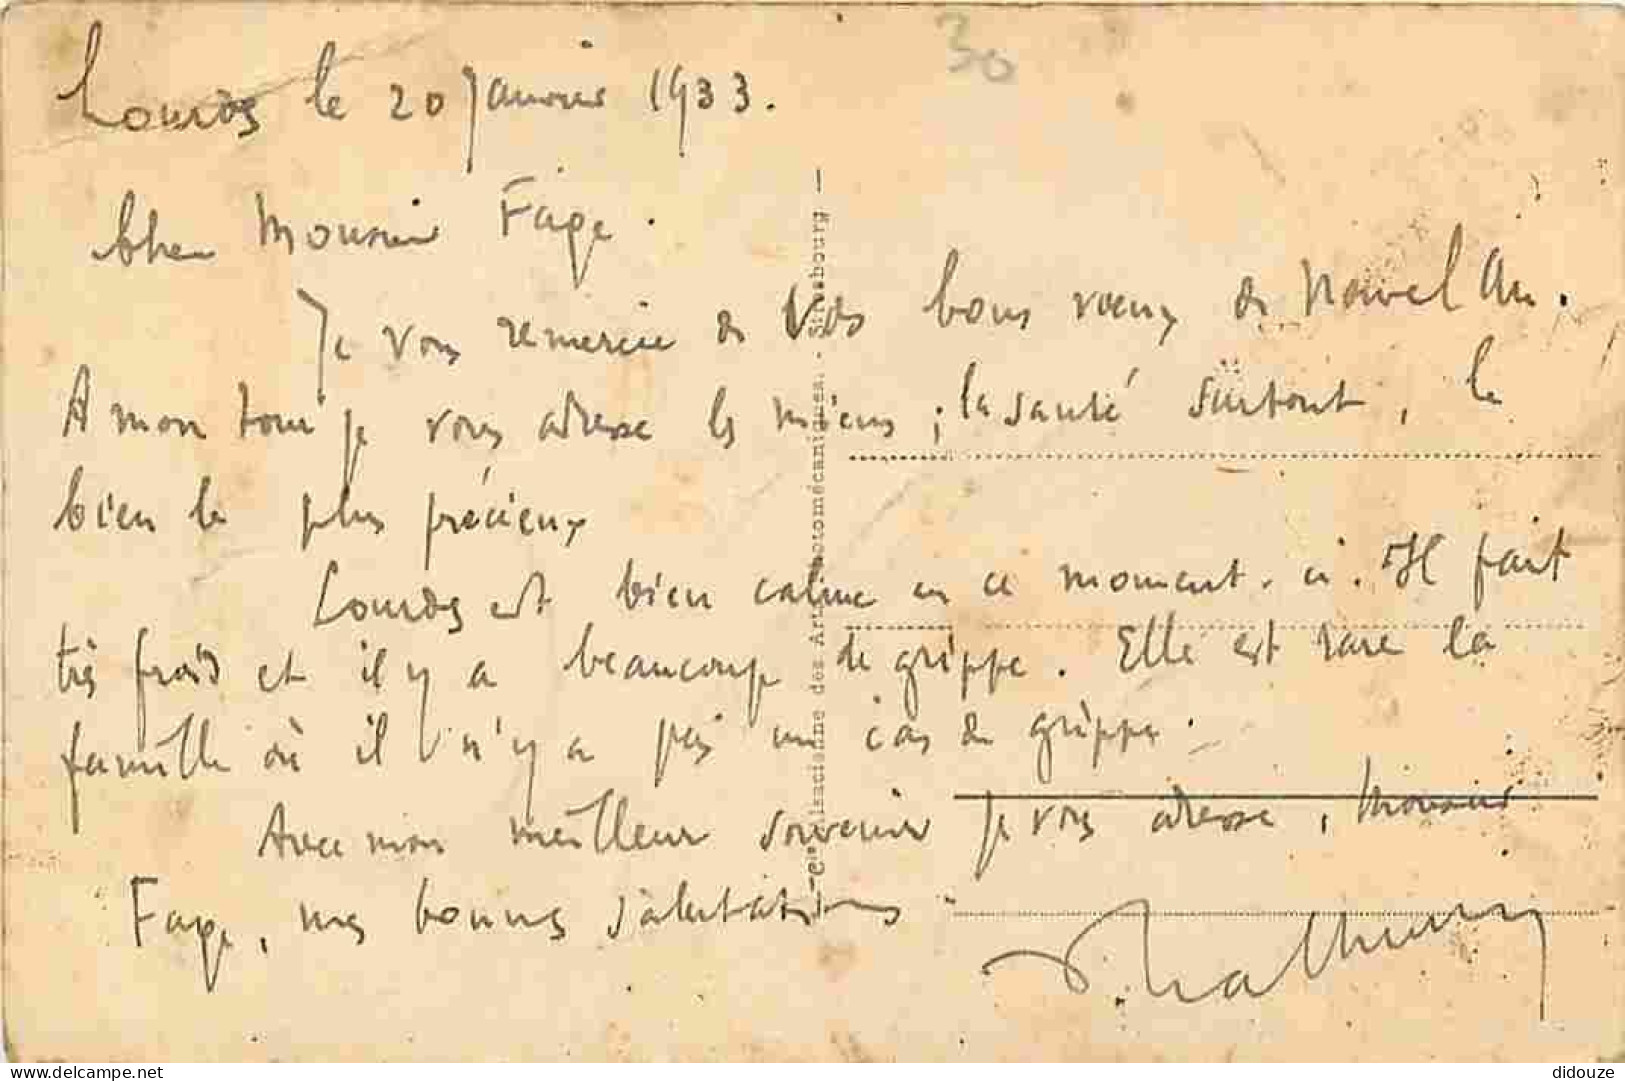 30
Lourdes le 20 Janvier 1933.
Cher Monsieur Fage.
Je vous remercie de vos bons vœux de Nouvel An.
A mon tour je vous adresse les miens ; la santé surtout, le
bien le plus précieux
Lourdes est bien calme en ce moment-ci. Il fait
très froid et il y a beaucoup de grippe. Elle est rare la
famille où il n'y a pas un cas de grippe.
Avec mon meilleur souvenir je vous adresse, Monsieur
Fage, mes bonnes salutations
Cie Alsacienne des Arts Photomécaniques. - Strasbourg
didouze